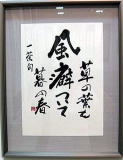 草の葉も
風癖ついて
暮の春
一茶句